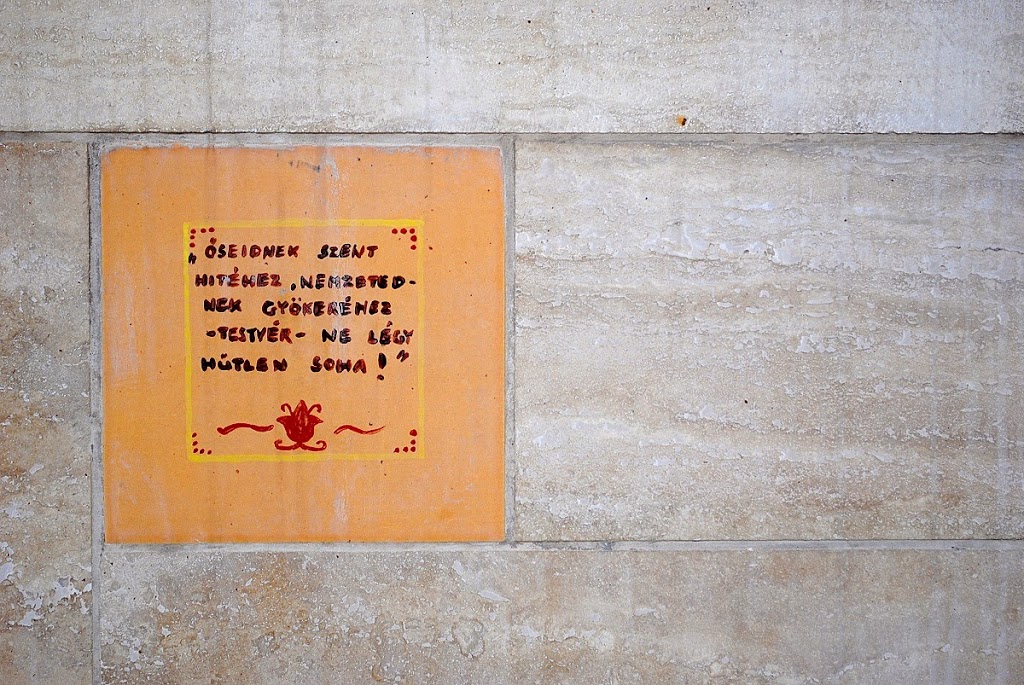 „ŐSEIDNEK SZENT
HITÉHEZ, NEMZETED-
NEK GYÖKERÉHEZ
-TESTVÉR- NE LÉGY
HŰTLEN SOHA!”